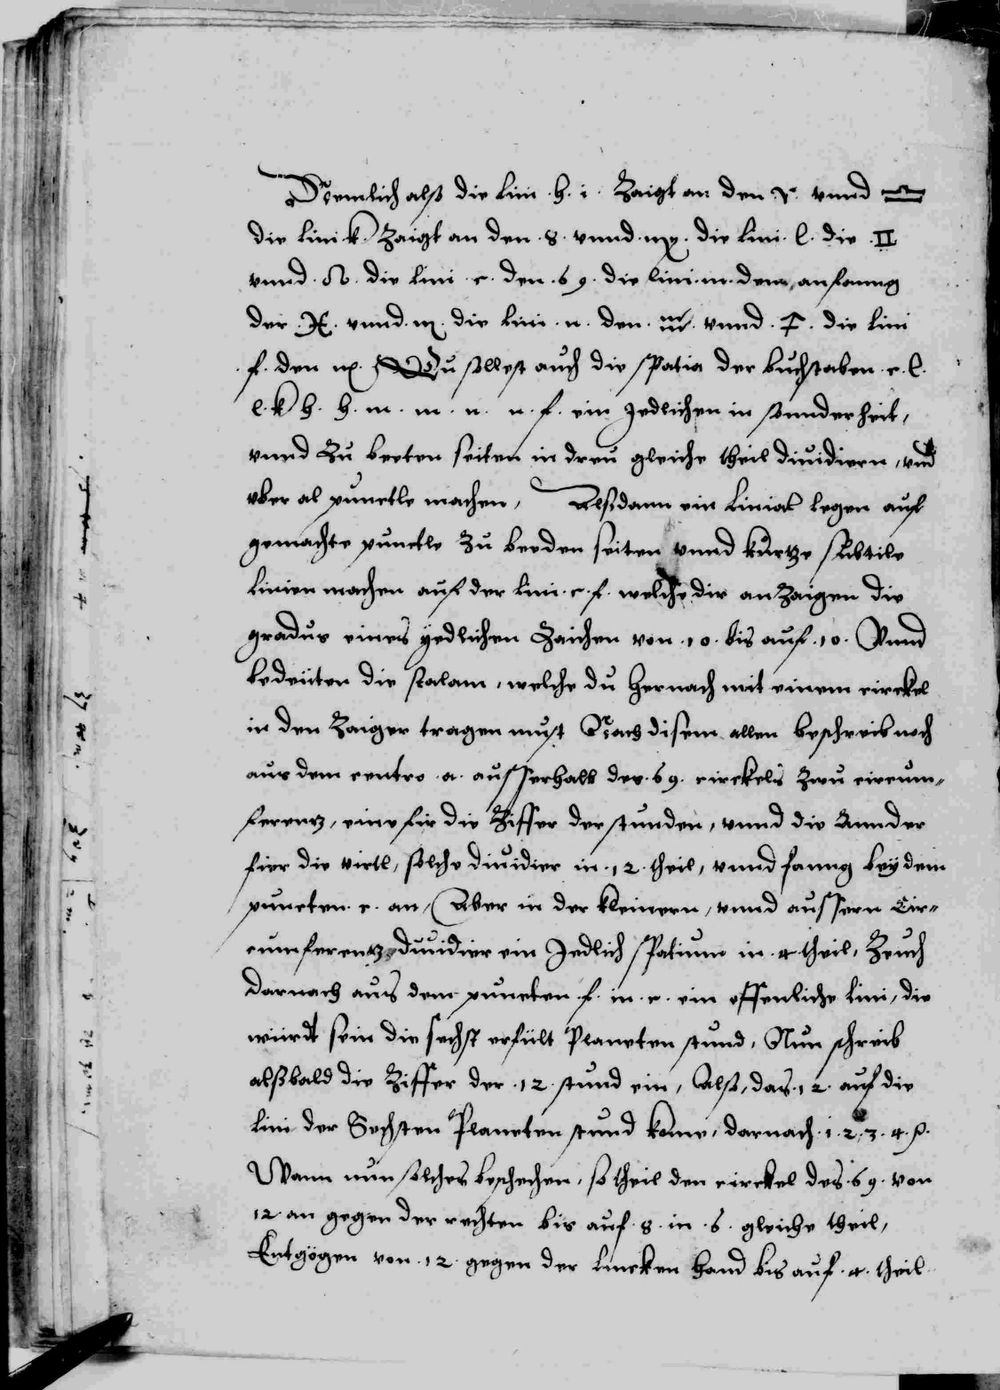 Nemlich alß die Lini .h. i. Zaigt an den ♈. vnnd ♎
die Lini k. Zaigt an den .♉. vnnd .♍. die Lini .l. die .♊
vnnd .♌. die Lini .c. den .♋. die lini .m. dem anfanng
der .♓. vnnd .♏. die Lini .n. den .♒. vnnd .♐. die Lini
.f. den ♑. Du sollest auch die spatia der buchstaben .c. l.
l. k h. h. m. m. n. n. f. ein Jedlichen in sonnderheit,
vnnd Zu beeten seiten in dreu gleiche theil diuidiern, vnd
vber al punctle machen, Alßdann ein Linial legen auf
gemachte punctle Zu beeden seiten vnnd kurtze subtile
linien machen auf der Lini .c. f. welche dir an Zaigen die
gradus eines yedlichen Zaichen von .10. bis auf .10. Vnnd
bedeuten die scalam, welche du hernach mit einem circkel
in den Zaiger tragen must Nach disem allen beschreib noch
aus dem centro .a. ausserhalb des .♋. circkels Zwu circum-
ferentz, eine fir die Ziffer der stunden, vnnd die Annder
fier die virtl, solche diuidier in .12. theil, vnnd fanng bey dem
puncten .c. an, Aber in der kleinern, vnnd aussern Cir-
cumferentz diuidier ein Jedlich spatium in .4. theil, Zeuch
darnach aus dem puncten .f. in .c. ein offenliche lini, die
würdt sein die sechst erfült Planeten stund, Nun schreib
alßbald die Ziffer der .12. stund ein, Also, das .12. auf die
lini der Sechsten Planeten stund kome, darnach .1. 2. 3. 4. 5.
Wann nun solches beschechen, so theil den circkel des .♋. von
12 an gegen der rechten bis auf .8. in .6. gleiche theil,
Entgögen von .12. gegen der lincken hand bis auf .4. theil